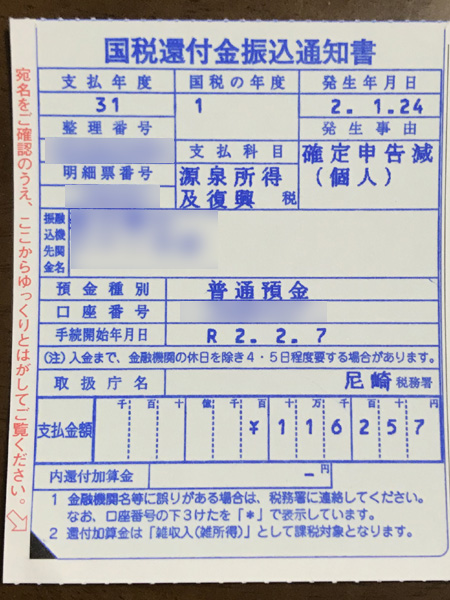 国税還付金振込通知書
支払年度
31
国税の年度
1
発生年月日
2. 1.24
整理番号
発生事由
確定申告減
(個人)
支払科目
源泉所得
及復興 税
明細票番号
振込先
金融機関名
預金種別
普通預金
口座番号
手続開始年月日
R 2. 2. 7
(注)入金まで、金融機関の休日を除き4・5日程度要する場合があります。
取扱庁名
尼崎 税務署
支払金額
千 百 十 億 千 百 十 万 千 百 十 円
¥116257
内還付加算金
− 円
1 金融機関名等に誤りがある場合は、税務署に連絡してください。
なお、口座番号の下3けたを「*」で表示しています。
2 還付加算金は「雑収入(雑所得)」として課税対象となります。
宛名をご確認のうえ、ここからゆっくりとはがしてご覧ください。